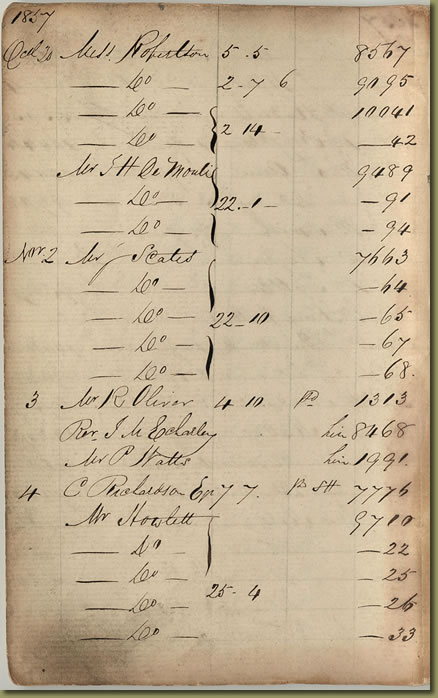 1837
Octr 20 Messs. Robertson 5 . 5 8567
— Do — 2 - 7 6 9095
— Do — 10041
— Do — 2 14 - — 42
Mr J H De Moulie 9489
— Do — 22 . - 1 - — 91
— Do — — 94
Novr. 2 Mr Scates 7663
— Do — — 64
— Do — 22 - 10 — 65
— Do — — 67
— Do — — 68
3 Mr R Oliver 4 10 Pd 1313
Rev. J M Echarley 8468
Mr P Watts 1991
4 C Richardson Esq 7 7 . 7776
Mr Howlett 9710
— Do — — 22
— Do — — 25
— Do — 25 - 4 — 26
— Do — — 33